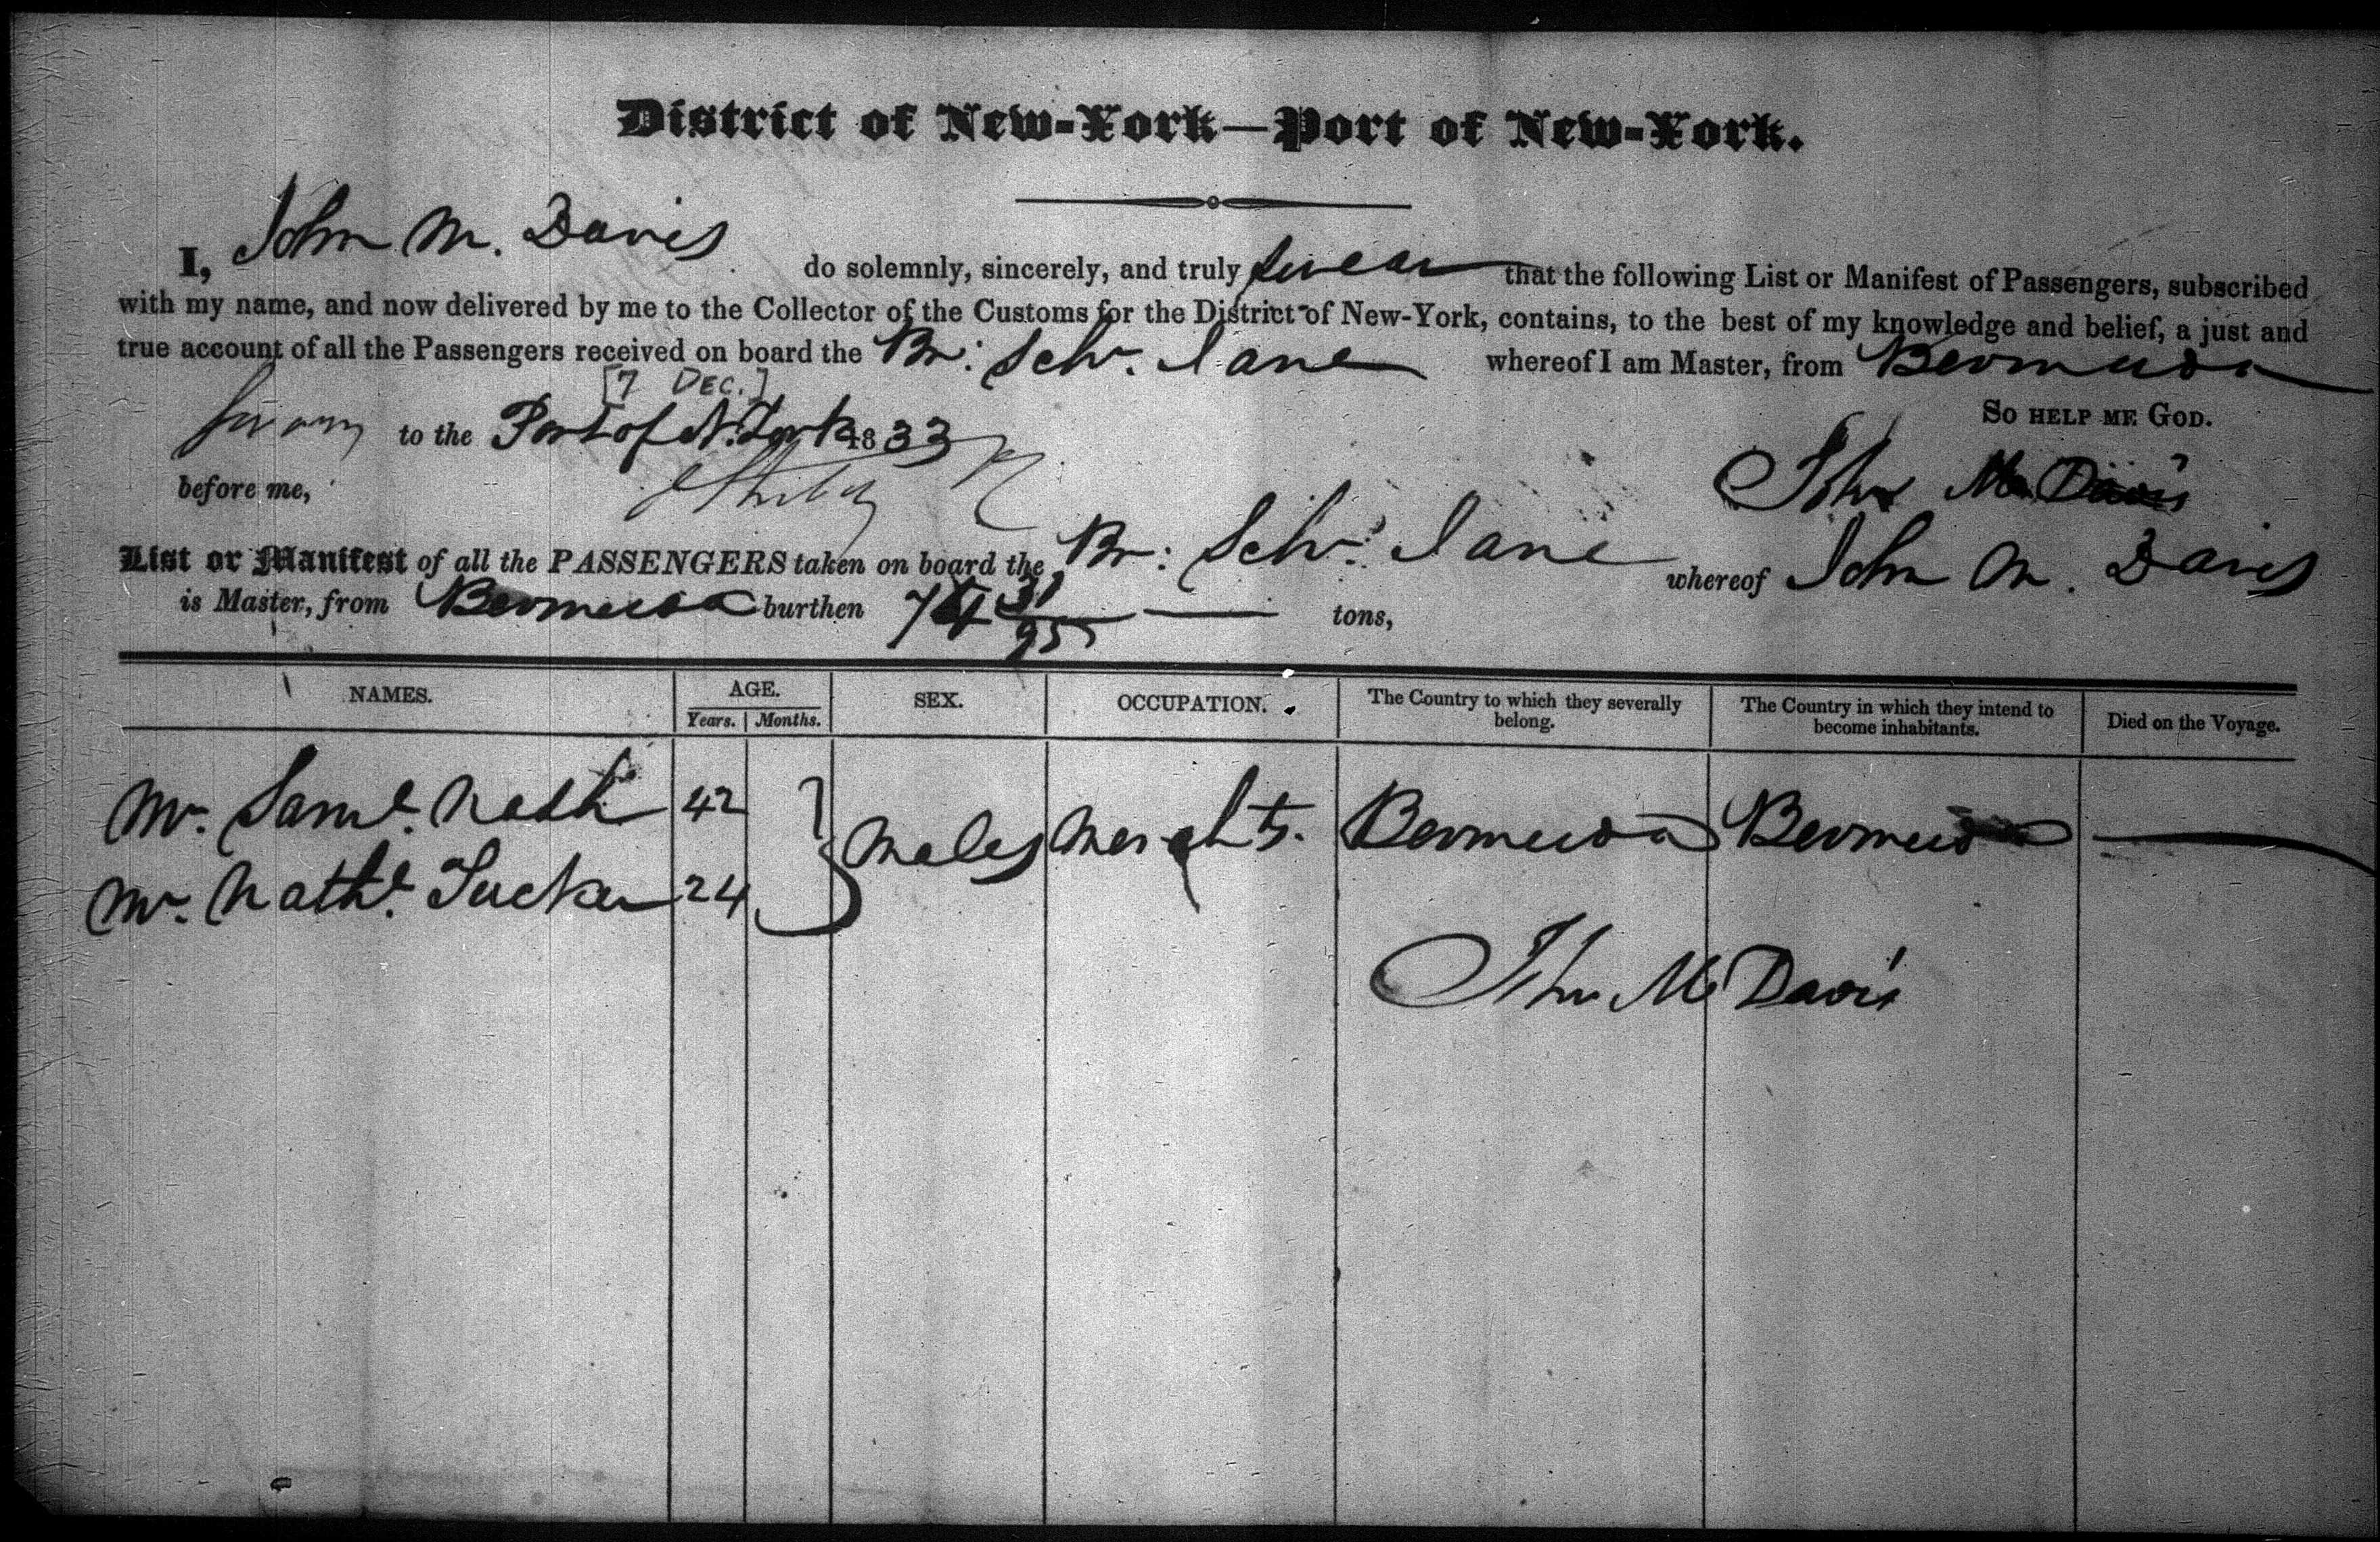 District of New-York—Port of New-York.
I, John M. Davis do solemnly, sincerely, and truly swear that the following List or Manifest of Passengers, subscribed
with my name, and now delivered by me to the Collector of the Customs for the District of New-York, contains, to the best of my knowledge and belief, a just and
true account of all the Passengers received on board the Br: Schr. Jane whereof I am Master, from Bermuda
[7 DEC.]
So HELP ME GOD.
Sworn to the Port of N. York 1833
John M Davis
before me,
List or Manifest of all the PASSENGERS taken on board the Br: Schr. Jane whereof John M. Davis
is Master, from Bermuda burthen 31/95 tons,
NAMES. AGE. SEX. OCCUPATION. The Country to which they severally belong. The Country in which they intend to become inhabitants. Died on the Voyage.
Years. Months.
Mr. Saml. Nash 42
Males Merchts. Bermuda Bermuda
Mr. Nathl. Tucker 24
John M Davis